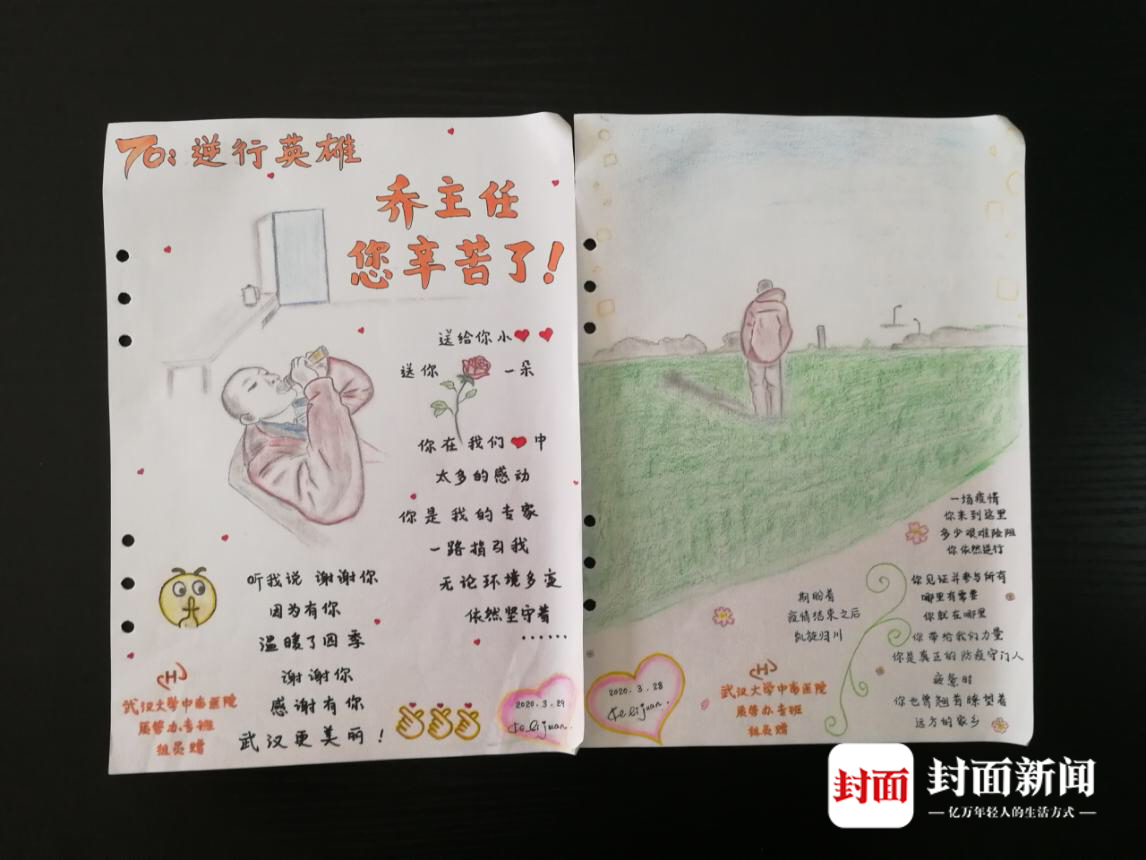 TO:逆行英雄
乔主任
您辛苦了!
送给你小
送你 一朵
你在我们 中
太多的感动
你是我的专家
一路指引我
无论环境多变
依然坚守着
······
听我说 谢谢你
因为有你
温暖了四季
谢谢你
感谢有你
武汉更美丽!
武汉大学中南医院
医管办专班
组员赠
2020.3.29
一场疫情
你来到这里
多少艰难险阻
你依然逆行
你见证并参与所有
哪里有需要
你就在哪里
你带给我们力量
你是真正的防疫守门人
疲惫时
你也曾翘首瞭望着
远方的家乡
期盼着
疫情结束之后
凯旋归川
2020.3.28
武汉大学中南医院
医管办专班
组员赠
封面
封面新闻
亿万年轻人的生活方式